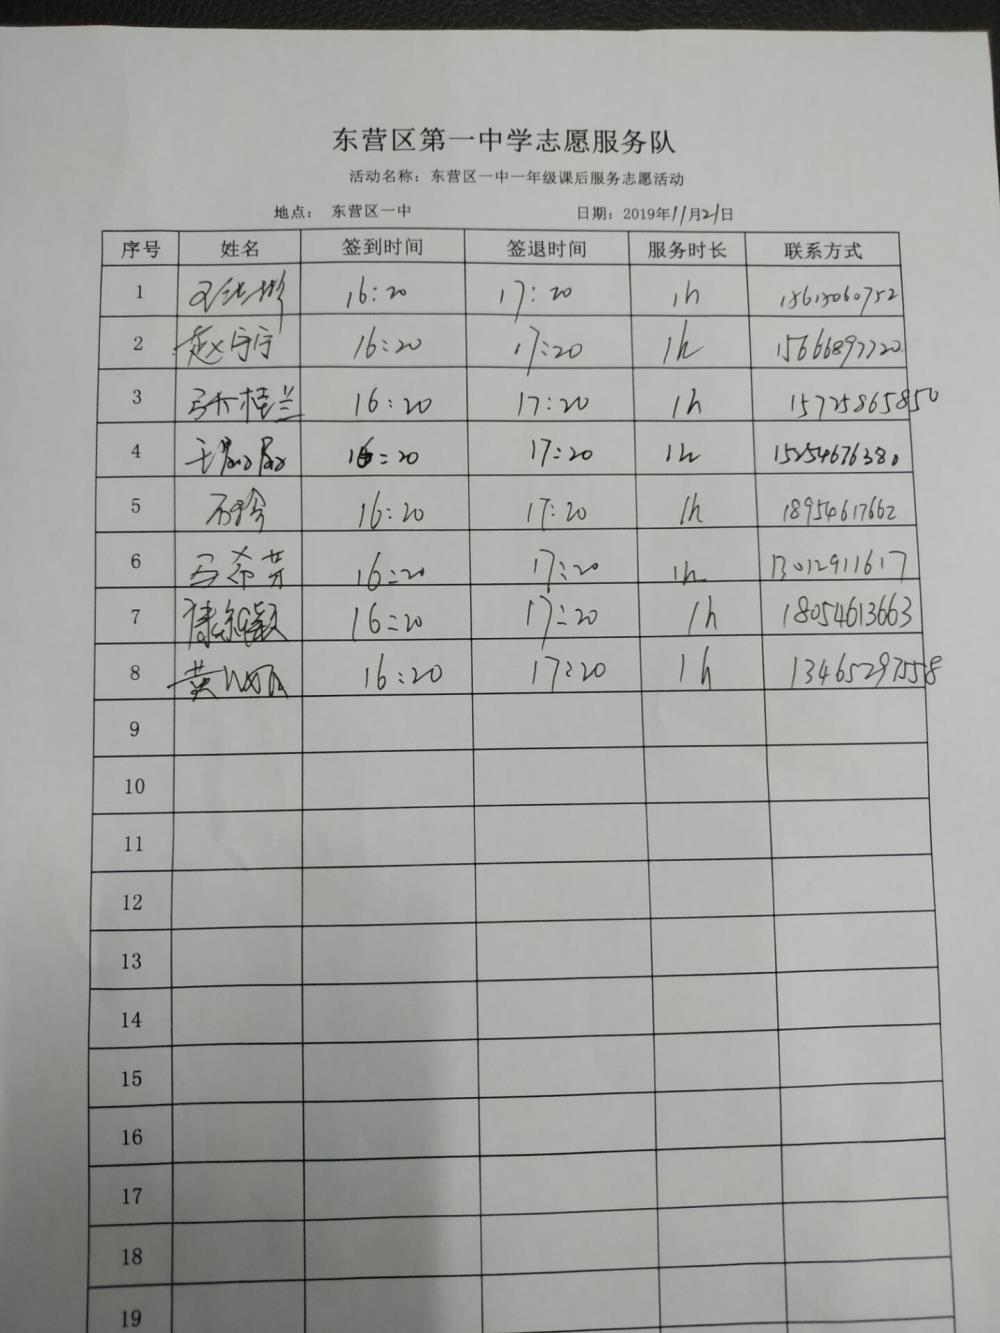 东营区第一中学志愿服务队
活动名称：东营区一中一年级课后服务志愿活动
地点： 东营区一中 日期：2019年11月21日
序号 姓名 签到时间 签退时间 服务时长 联系方式
1 16:20 17:20 1h
2 赵宁宁 16:20 17:20 1h 15666897720
3 张桂兰 16:20 17:20 1h 15725865850
4 16:20 17:20 1h 15254676380
5 石玲 16:20 17:20 1h 18954617662
6 马希芳 16:20 17:20 1h 13012911617
7 16:20 17:20 1h 18054613663
8 黄 16:20 17:20 1h 13465297558
9
10
11
12
13
14
15
16
17
18
19